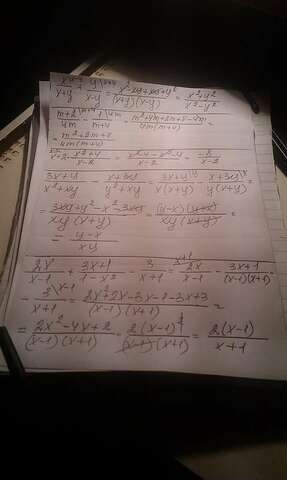 x/x+y + y/x-y = x²-xy+xy+y²/(x+y)(x-y) = x²+y²/x²-y²
m+2/4m - 1/m+4 = m²+4m+2m+8-4m/4m(m+4) =
= m²+2m+8/4m(m+4)
x+2 - x²+4/x-2 = x²-4-x²-4/x-2 = -8/x-2
3x+y/x²+xy - x+3y/y²+xy = 3x+y/x(x+y) - x+3y/y(x+y) =
= 3xy+y²-x²-3xy/xy(x+y) = (y-x)(y+x)/xy(x+y) =
= y-x/xy
2x/x-1 + 3x+1/1-x² - 3/x+1 = 2x/x-1 - 3x+1/(x-1)(x+1) -
- 3/x+1 = 2x²+2x-3x-1-3x+3/(x-1)(x+1) =
= 2x²-4x+2/(x-1)(x+1) = 2(x-1)²/(x-1)(x+1) = 2(x-1)/x+1